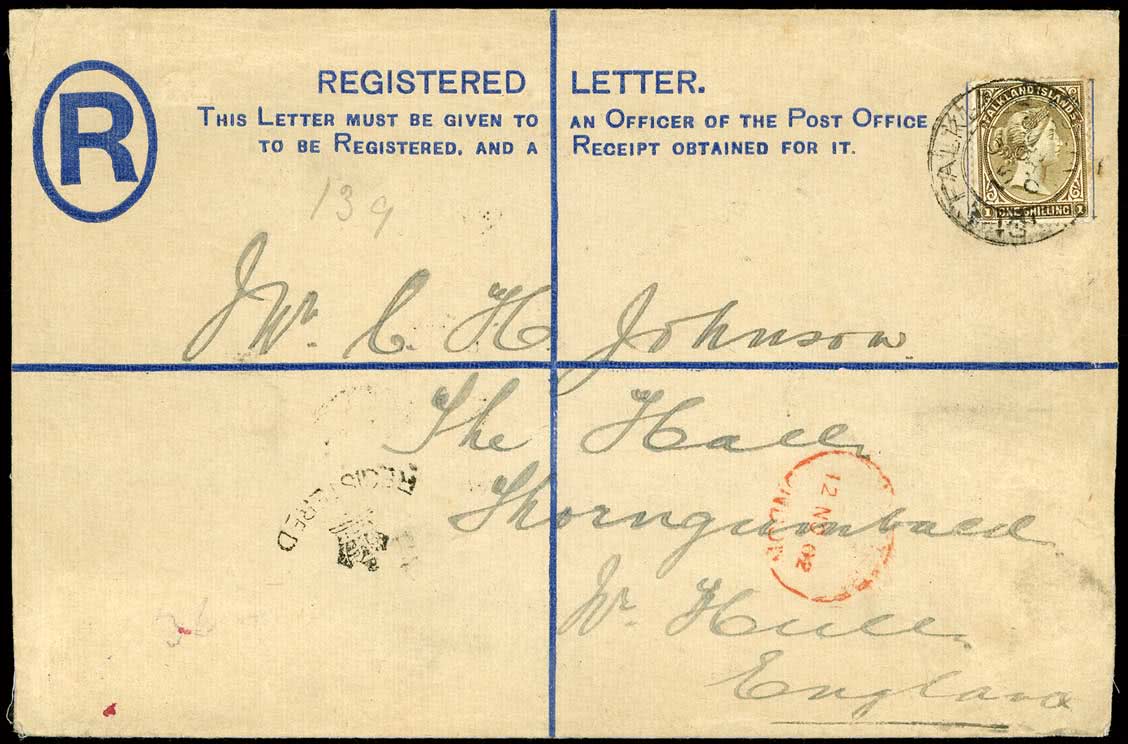 R
REGISTERED LETTER.
THIS LETTER MUST BE GIVEN TO AN OFFICER OF THE POST OFFICE
TO BE REGISTERED, AND A RECEIPT OBTAINED FOR IT.
FALKLAND ISLANDS
1 ONE SHILLING 1
FALKL
139
Mr. C. H. Johnson
The Hall,
Thorngumbald
Nr. Hull,
England
REGISTERED
12 NO 02
LONDON